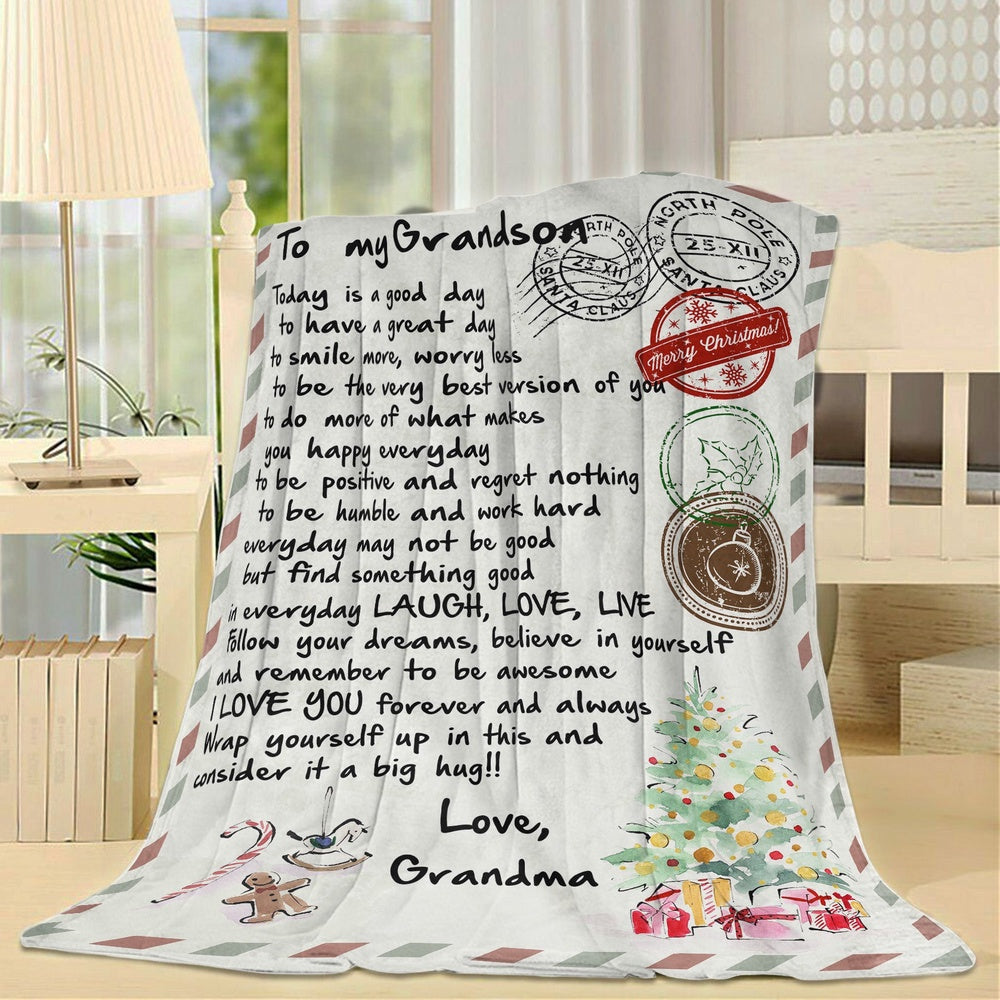 To my Grandson
Today is a good day
to have a great day
to smile more, worry less
to be the very best version of you
to do more of what makes
you happy everyday
to be positive and regret nothing
to be humble and work hard
everyday may not be good
but find something good
in everyday LAUGH, LOVE, LIVE
Follow your dreams, believe in yourself
and remember to be awesome
I LOVE YOU forever and always
Wrap yourself up in this and
consider it a big hug!!
Love,
Grandma
NORTH POLE
25-XII
SANTA CLAUS
NORTH POLE
25-XII
SANTA CLAUS
Merry Christmas!